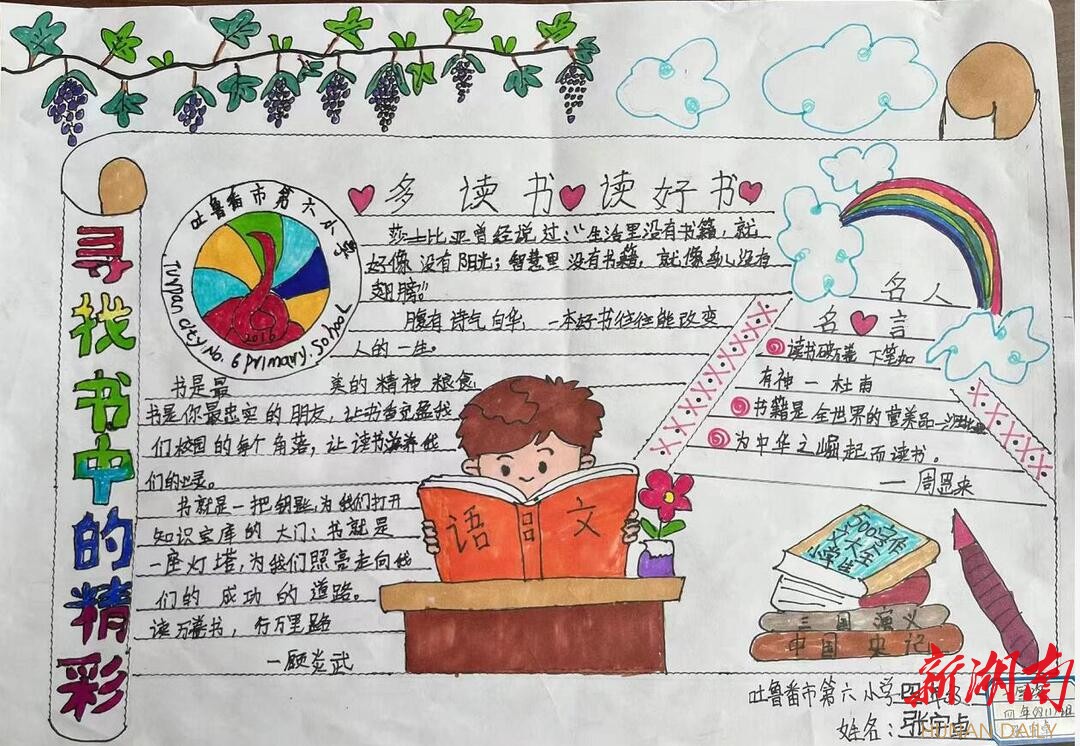 寻找书中的精彩
吐鲁番市第六小学
TURPan city No. 6 primary. School
2016
多读书 读好书
莎士比亚曾经说过："生活里没有书籍，就
好像没有阳光；智慧里没有书籍，就像鸟儿没有
翅膀"
腹有诗气自华，一本好书往往能改变
人的一生。
书是最 美的精神粮食
书是你最忠实的朋友，让书香充盈我
们校园的每个角落，让读书滋养我
们的心灵。
书就是一把钥匙，为我们打开
知识宝库的大门；书就是
一座灯塔，为我们照亮走向我
们的成功的道路。
读万卷书，行万里路
一顾炎武
名人
名言
读书破万卷 下笔如
有神 — 杜甫
书籍是全世界的营养品
为中华之崛起而读书。
— 周恩来
语文
500字作
文大全
小学生
三国演义
中国史记
新湖南
HUNAN DAILY
吐鲁番市第六小学四年级
姓名：张宇卓